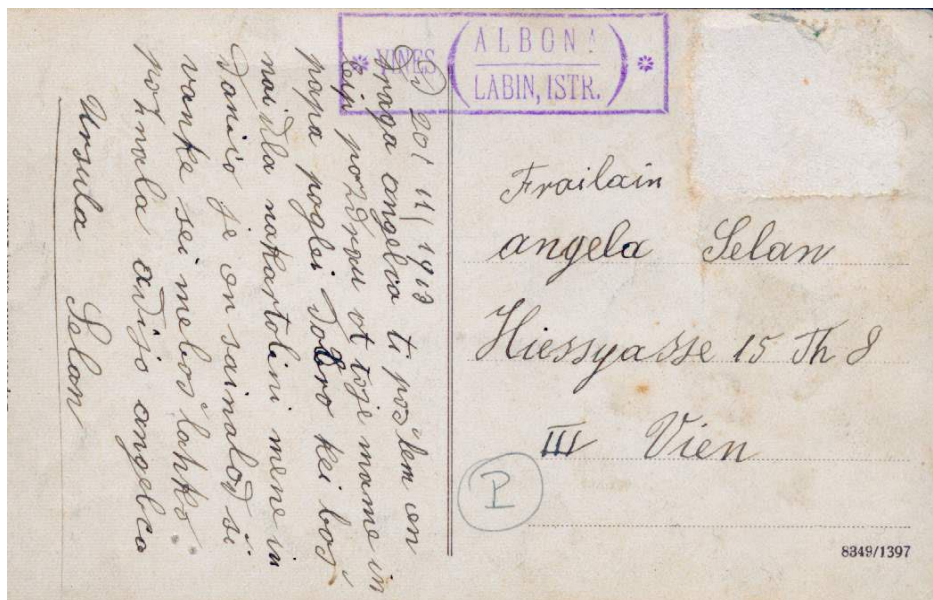 * VINES (ALBONA
LABIN, ISTR.) *
20/11/1913
draga angelca ti pošlem en
leip pozdrau ot toje mame in
papa poglei dobro kei boš
noidla nakartolini mene in
Danico je on sainalod ši
vanke sei meboš lahko
poznala adijo angelca
Ursula Selan
Frailain
angela Selan
Hiessgasse 15 Th 8
III Vien
P
8349/1397